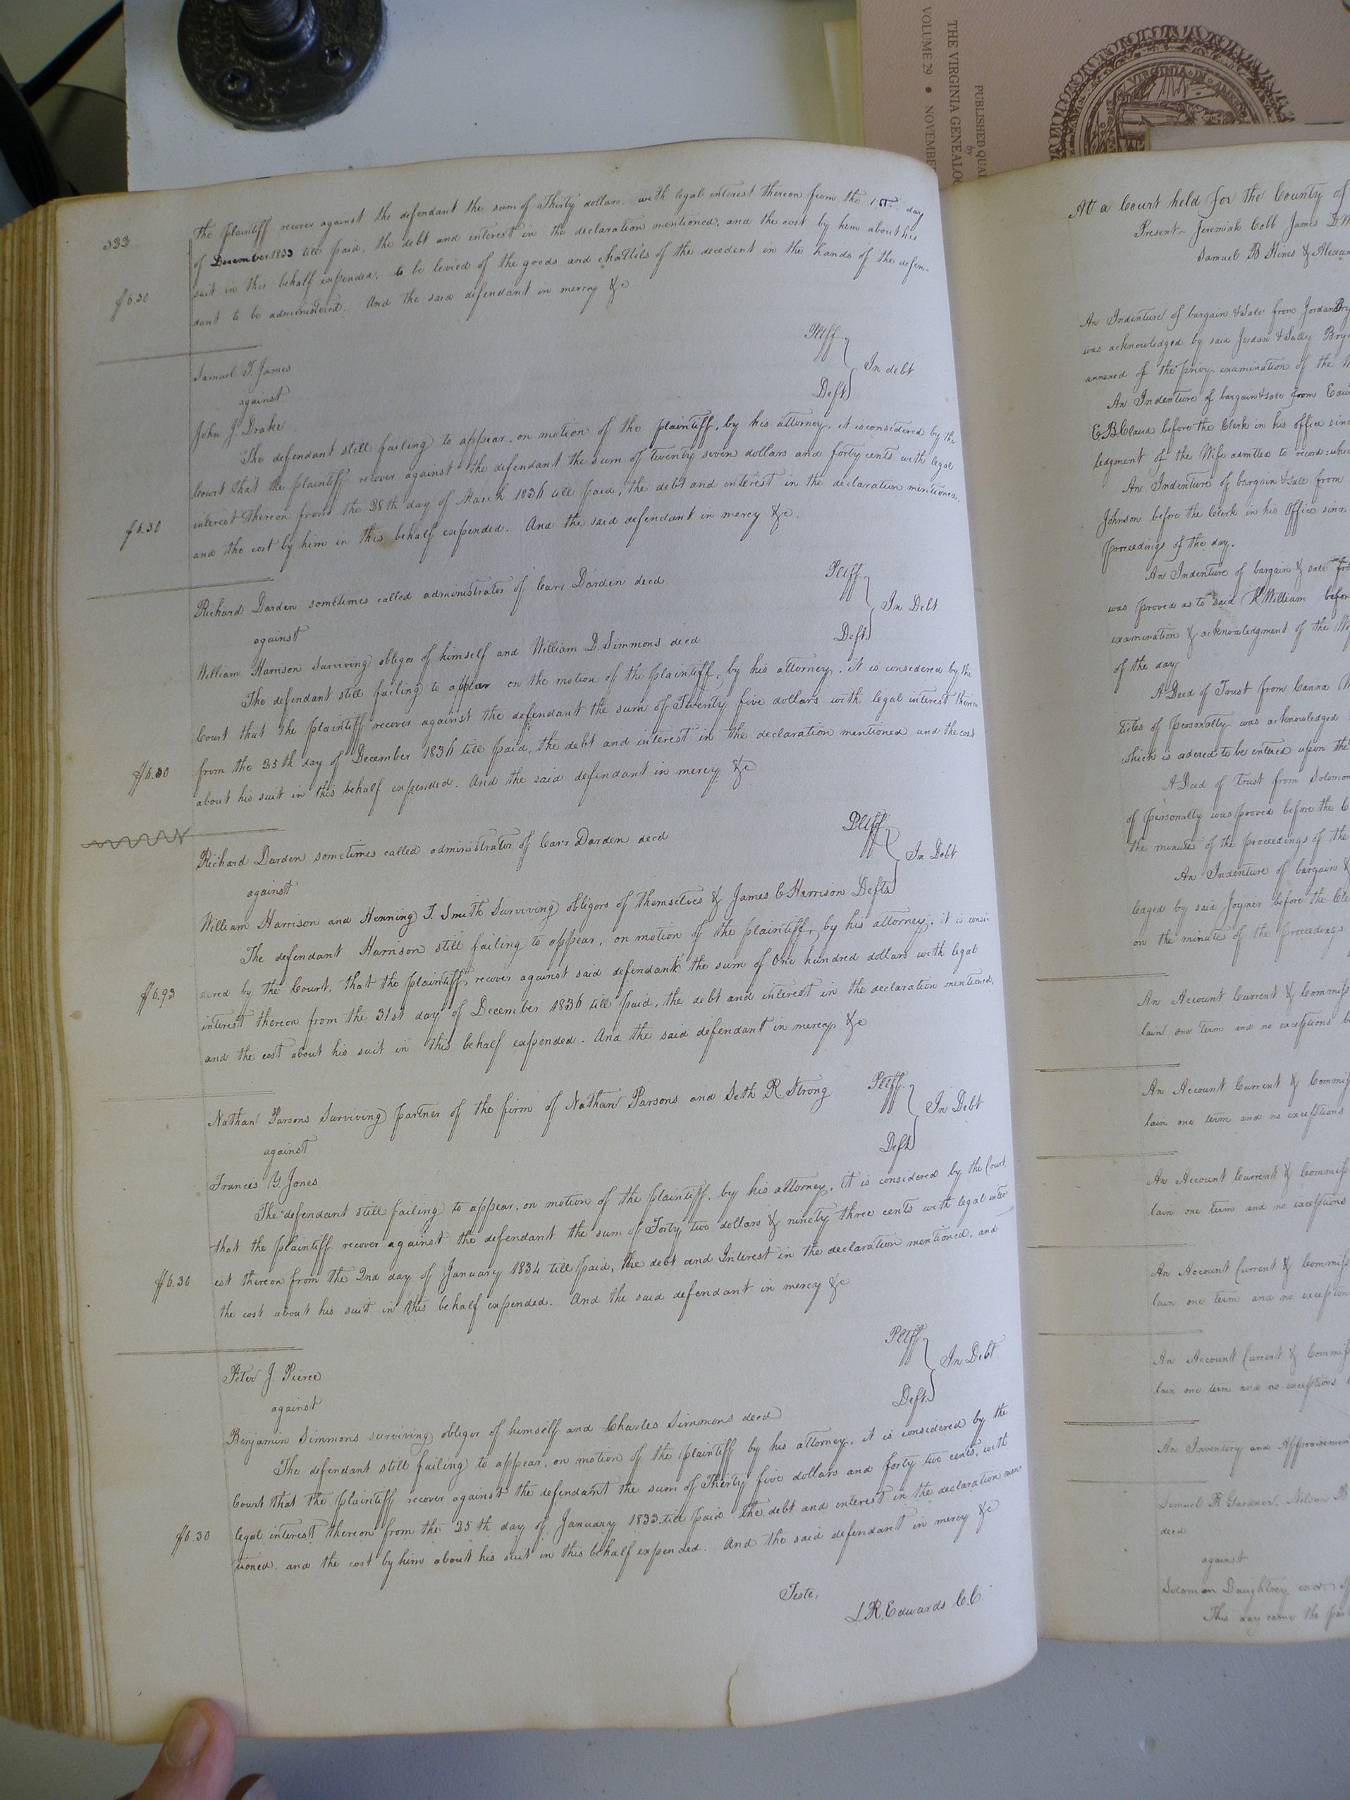 THE VIRGINIA GENEALO
VOLUME 29 • NOVEMBE
PUBLISHED QUA
by
VIRGINIA
333
The plaintiff recover against the defendant the sum of Thirty dollars. with legal interest thereon from the 1st day
of December 1833 till paid, the debt and interest in the declaration mentioned, and the cost by him about his
suit in this behalf expended, to be levied of the goods and chattels of the decedent in the hands of the defen-
$6.30
dant to be administered. And the said defendant in mercy &c
Samuel T. James Pltff
against In debt
John J Drake Deft
The defendant still failing to appear, on motion of the plaintiff, by his attorney, it is considered by the
Court that the plaintiff recover against the defendant the sum of twenty seven dollars and forty cents with legal
interest thereon from the 28th day of March 1836 till paid, the debt and interest in the declaration mentioned,
$6.30
and the cost by him in this behalf expended. And the said defendant in mercy &c.
Richard Darden sometimes called administrator of Carr Darden decd Pltff
against In Debt
William Harrison surviving obligor of himself and William D. Simmons decd Deft
The defendant still failing to appear on the motion of the plaintiff, by his attorney, it is considered by the
Court that the plaintiff recover against the defendant the sum of Twenty five dollars with legal interest thereon
from the 25th day of December 1836 till paid, the debt and interest in the declaration mentioned and the cost
$6.30
about his suit in this behalf expended. And the said defendant in mercy &c
Richard Darden sometimes called administrator of Carr Darden decd Pltff
against In Debt
William Harrison and Henning T. Smith Surviving obligors of themselves & James C Harrison Defts
The defendant Harrison still failing to appear, on motion of the plaintiff, by his attorney, it is consi-
dered by the Court, that the plaintiff recover against said defendant the sum of One hundred dollars with legal
$6.93
interest thereon from the 31st day of December 1836 till paid, the debt and interest in the declaration mentioned,
and the cost about his suit in this behalf expended. And the said defendant in mercy &c
Nathan Parsons Surviving partner of the firm of Nathan Parsons and Seth R Strong Pltff
against In Debt
Francis Y Jones Deft
The defendant still failing to appear, on motion of the plaintiff, by his attorney, it is considered by the Court
that the plaintiff recover against the defendant the sum of Forty two dollars & ninety three cents with legal inter
$6.30
est thereon from the 2nd day of January 1834 till paid, the debt and Interest in the declaration mentioned, and
the cost about his suit in this behalf expended. And the said defendant in mercy &c
Peter J. Pierce Pltff
against In Debt
Benjamin Simmons surviving obligor of himself and Charles Simmons decd Deft
The defendant still failing to appear, on motion of the plaintiff by his attorney, it is considered by the
Court that the plaintiff recover against the defendant the sum of Thirty five dollars and forty two cents, with
$6.30
legal interest thereon from the 25th day of January 1833 till paid the debt and interest in the declaration men
tioned, and the cost by him about his suit in this behalf expended. And the said defendant in mercy &c
Teste,
L. R. Edwards C.C.
At a Court held for the County of
Present Jeremiah Cobb James D
Samuel B Hines &
An Indenture of bargain & sale from Jordan
was acknowledged by said Jordan & Sally
annexed of the privy examination of the
An Indenture of bargain & sale from
E B Claud before the Clerk in his office since
ledgment of the Wife admitted to record:
An Indenture of bargain & sale from
Johnson before the Clerk in his Office since
proceedings of the day.
An Indenture of bargain & sale from
was proved as to said William before
examination & acknowledgment of the
of the day
A Deed of Trust from
ticles of personalty was acknowledged
which is ordered to be entered upon the
A Deed of Trust from Solomon
of personalty was proved before the
the minutes of the proceedings of the
An Indenture of bargain &
ledged by said Joyner before the
on the minutes of the proceedings
An Account Current &
lain one term and no exceptions
An Account Current &
lain one term and no exceptions
An Account Current &
lain one term and no exceptions
An Account Current &
lain one term and no exceptions
An Account Current &
lain one term and no exceptions
An Inventory and Appraisement
Samuel R Gardner, Nelson
decd
against
Solomon Daughtrey
This day came the